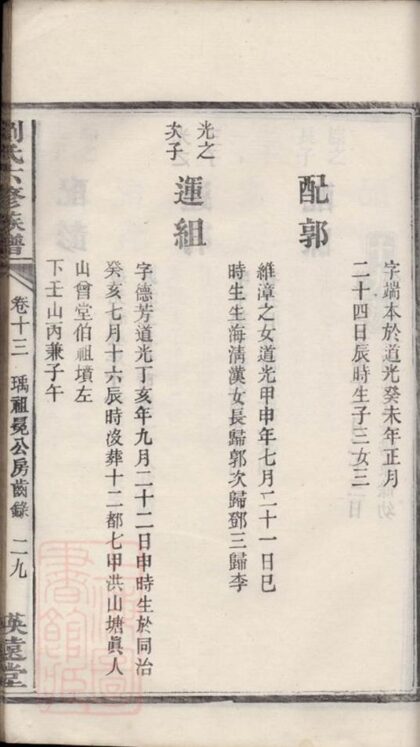 字端本於道光癸未年正月
二十四日辰時生子三女三
配郭
維漳之女道光甲申年七月二十一日巳
時生生海淸漢女長歸郭次歸鄧三歸李
光之
次子
運組
字德芳道光丁亥年九月二十二日申時生於同治
癸亥七月十六辰時沒葬十二都七甲洪山塘眞人
山曾堂伯祖墳左
下壬山丙兼子午
劉氏六修族譜
卷十三
瑀祖冕公房齒錄
二九
映遠堂